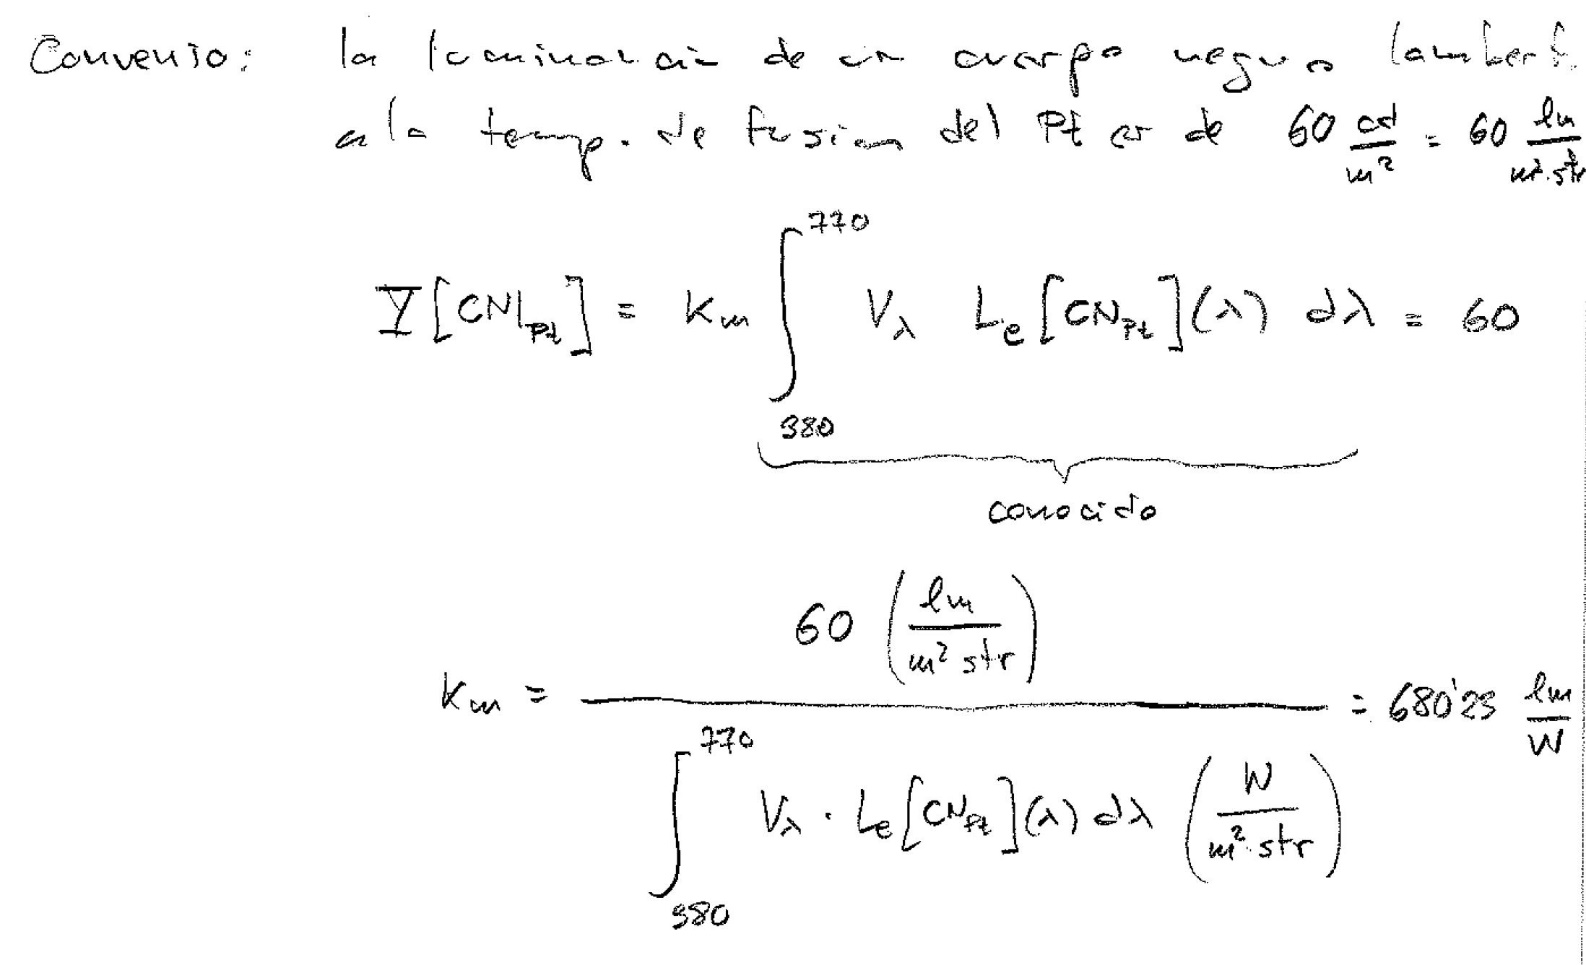 Convenio: la luminancia de un cuerpo negro lambert.
a la temp. de fusion del Pt es de 60 cd/m² = 60 lm/m².str
Y[CN|Pt] = Km ∫_380^770 Vλ Le[CNPt](λ) dλ = 60
conocido
Km = 60 (lm/m² str) / ∫_380^770 Vλ · Le[CNPt](λ) dλ (W/m².str) = 680'23 lm/W